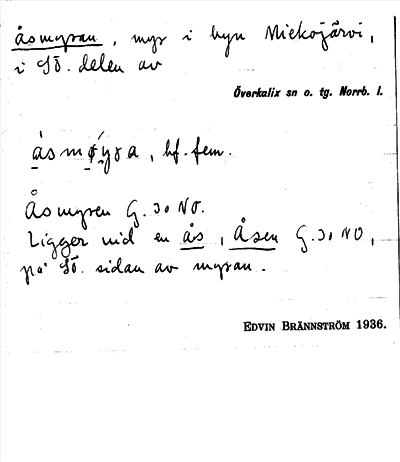 åsmyran, myr i byn Miekojärvi,
i SÖ. delen av
Överkalix sn o. tg. Norrb. l.
åsmøyra, bf. fem.
Åsmyren G. 30 NO.
Ligger vid en ås, Åsen G. 30 NO,
på SÖ. sidan av myran.
EDVIN BRÄNNSTRÖM 1936.